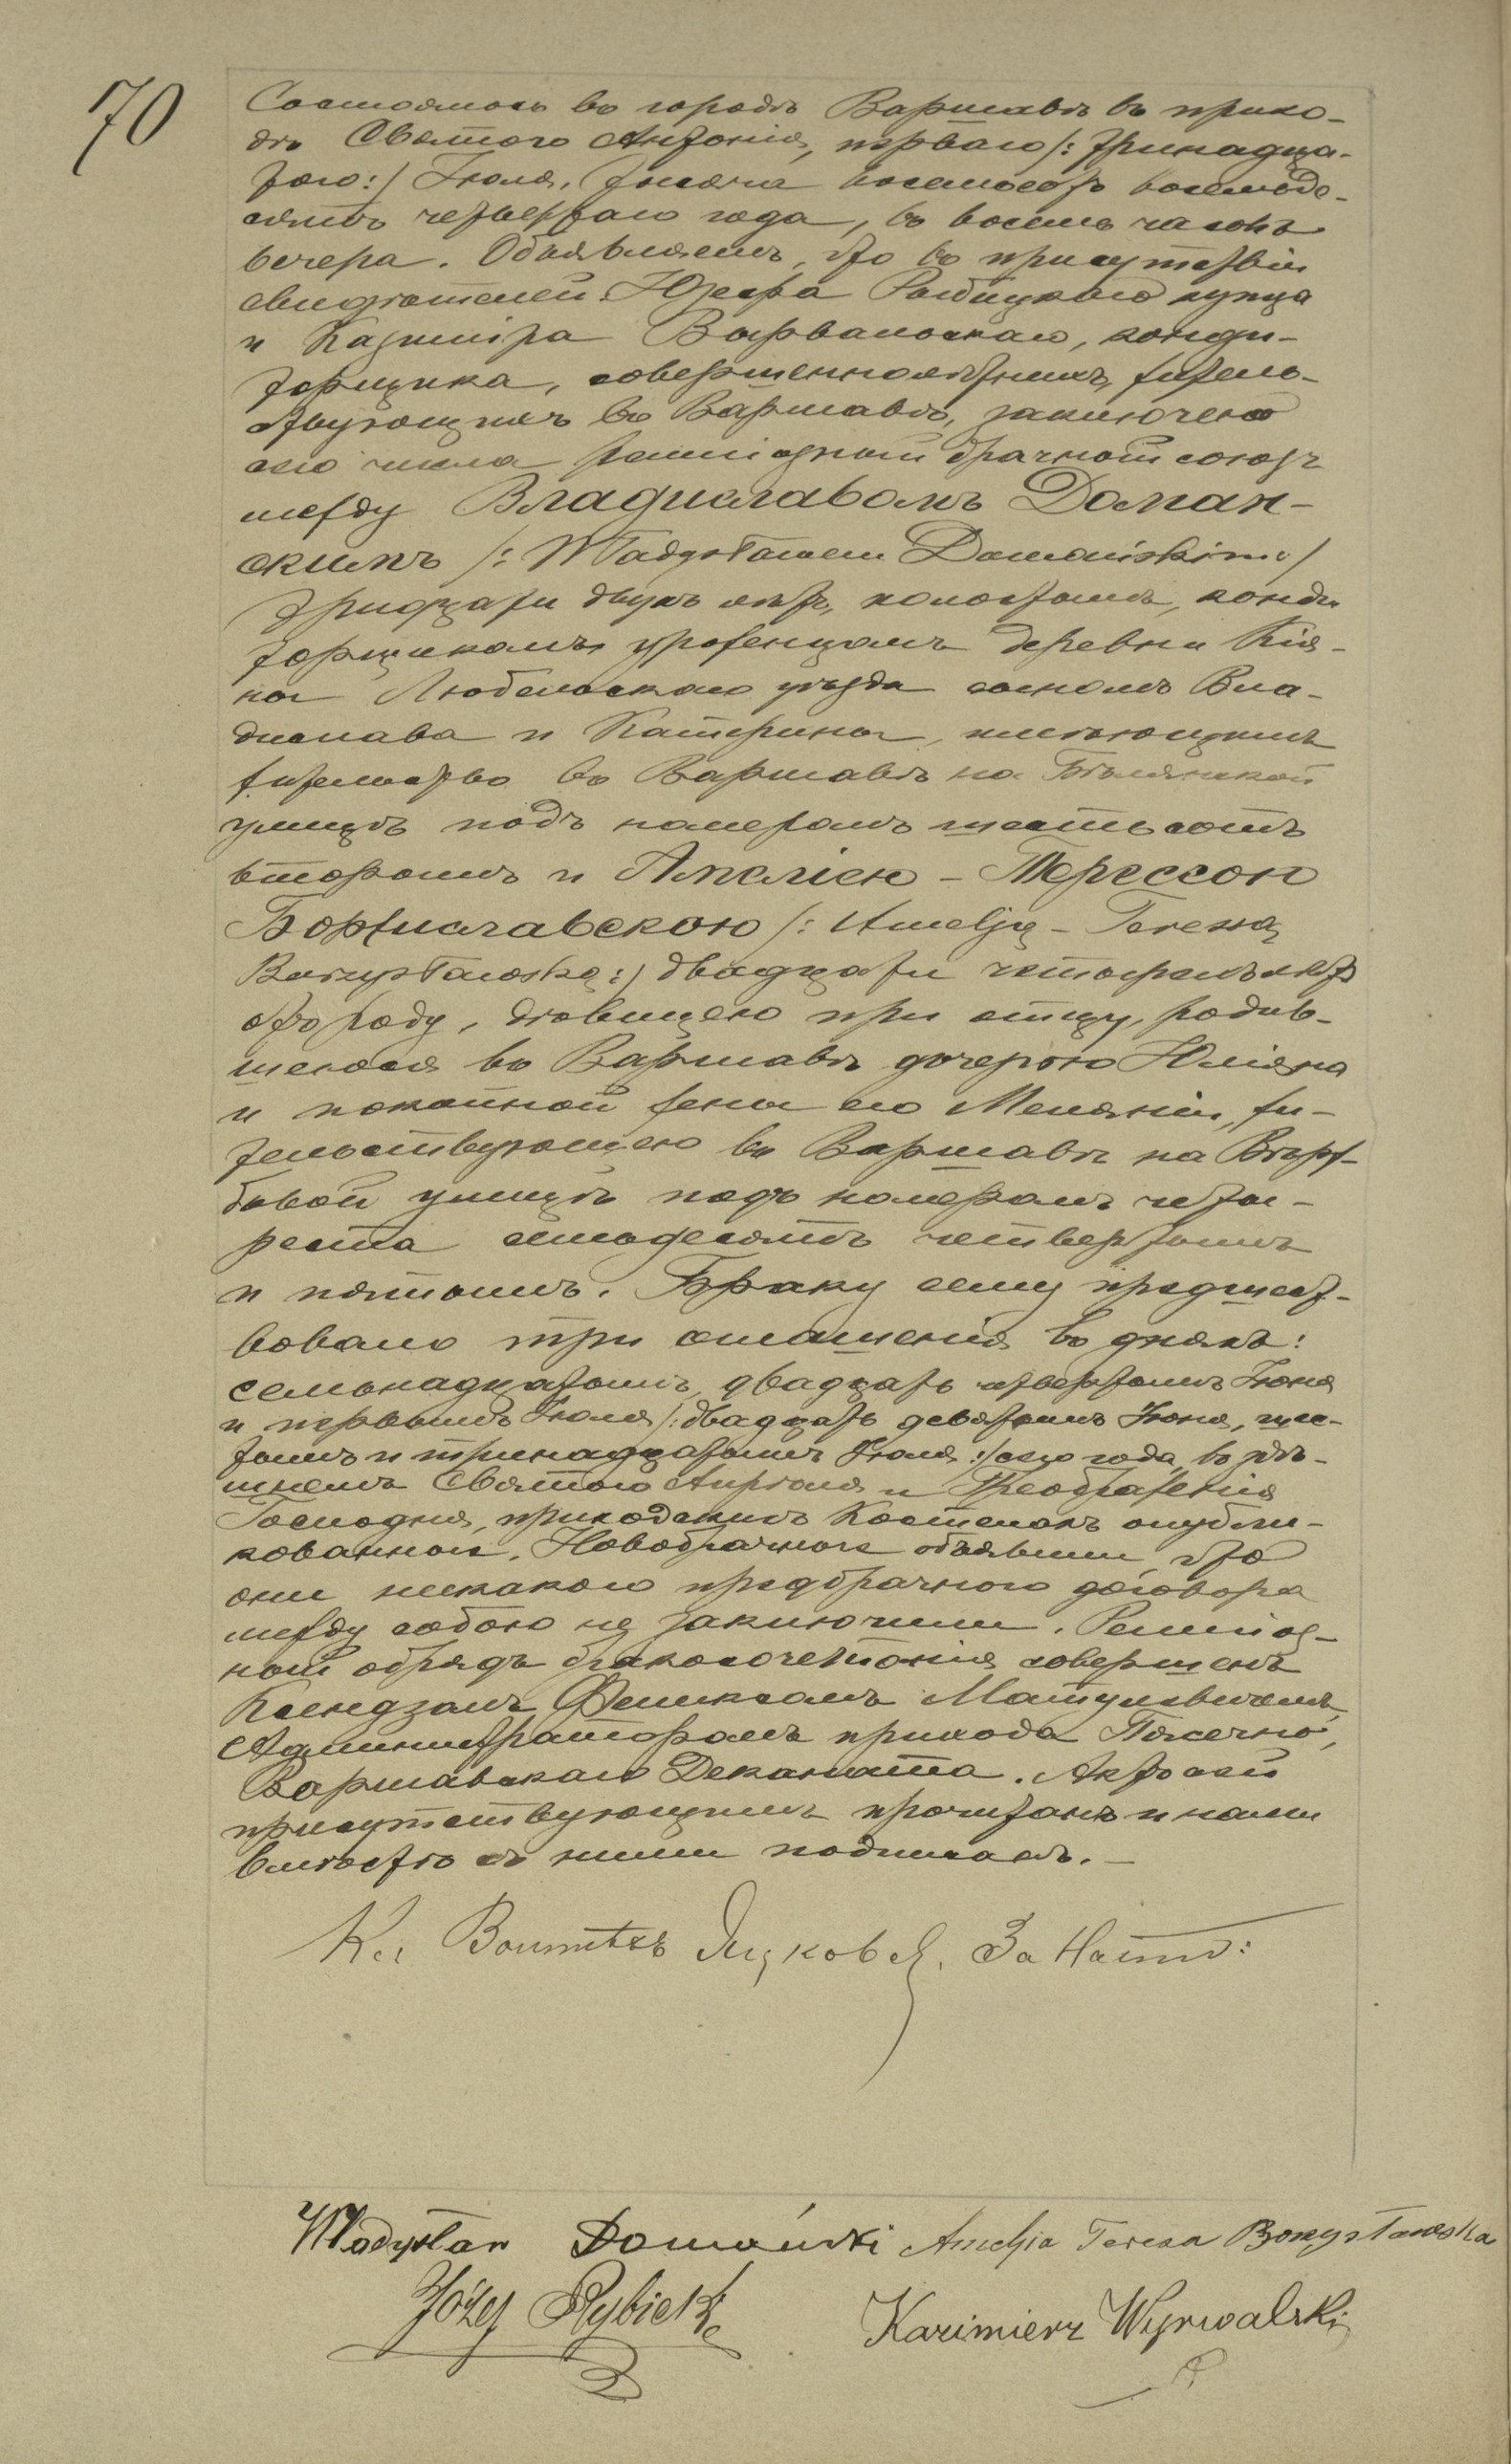 70
Состоялось въ городѣ Варшавѣ въ прихо-
дѣ Святого Антонія, перваго /: тринадца-
таго :/ Іюля, тысяча восемьсотъ восемьде-
сятъ четвертаго года, въ восемь часовъ
вечера. Объявляемъ, что въ присутствіи
свидѣтелей Юзефа Рыбицкаго купца
и Казиміра Вырвальскаго, конди-
торщика, совершеннолѣтнихъ, житель-
ствующихъ въ Варшавѣ, заключенъ
сего числа религіозный брачный союзъ
между Владиславомъ Доман-
скимъ /: Władysławem Domańskim :/
тридцати двухъ лѣтъ, холостымъ, конди
торщикомъ, уроженцомъ деревни Кія-
ны Любельскаго уѣзда сыномъ Вла-
дислава и Катерины, имѣющимъ
жительство въ Варшавѣ на Бѣлянской
улицѣ подъ номеромъ шестьсотъ
вторымъ и Амеліею - Терессою
Боржиславскою /: Amelją - Teresą
Borzysławską :/ двадцати четырехъ лѣтъ
отъ роду, дѣвицею при отцу, родив-
шеюся въ Варшавѣ дочерью Юліяна
и покойной жены его Меланіи, жи-
тельствующею въ Варшавѣ на Вѣрж-
бовой улицѣ подъ номеромъ четы-
реста семьдесятъ четвертымъ
и пятымъ. Браку сему предшест-
вовало три оглашенія въ дняхъ:
семьнадцатомъ, двадцать четвертомъ Іюня
и первымъ Іюля /: двадцать девятомъ Іюня, шес-
томъ и тринадцатомъ Іюля :/ сего года, въ здѣ-
шнемъ Святого Антонія и Преображенія
Господня, приходскихъ Костелахъ опубли-
кованныя. Новобрачные объявили, что
они никакого предбрачного договора
между собою не заключили. Религіоз-
ный обрядъ бракосочетанія совершенъ
Ксендзомъ Феликсомъ Матулевичемъ,
Администраторомъ прихода Пясечно,
Варшавскаго Деканата. Актъ сей
присутствующимъ прочитанъ и нами
вмѣстѣ съ ними подписанъ. —
Кс. За Наст:
Władysław Domański Amelja Teresa Borzysławska
Józef Rybicki
Kazimierz Wyrwalski